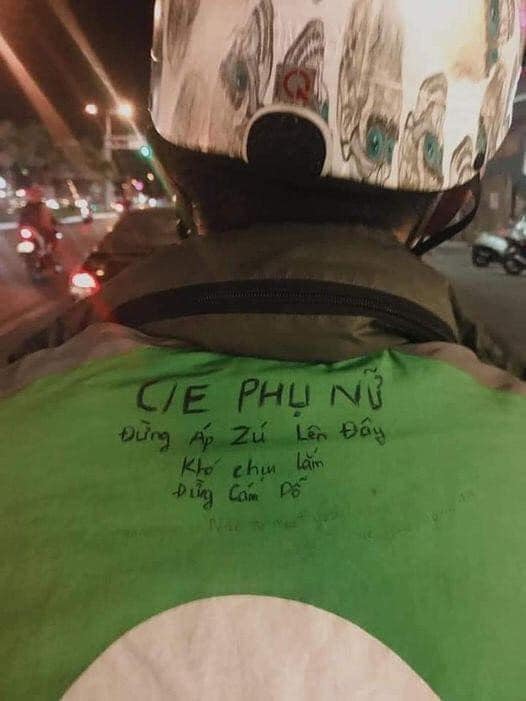 C/E PHỤ NỮ
Đừng Áp Zú Lên Đây
Khó chịu lắm
Đừng Cám Dỗ